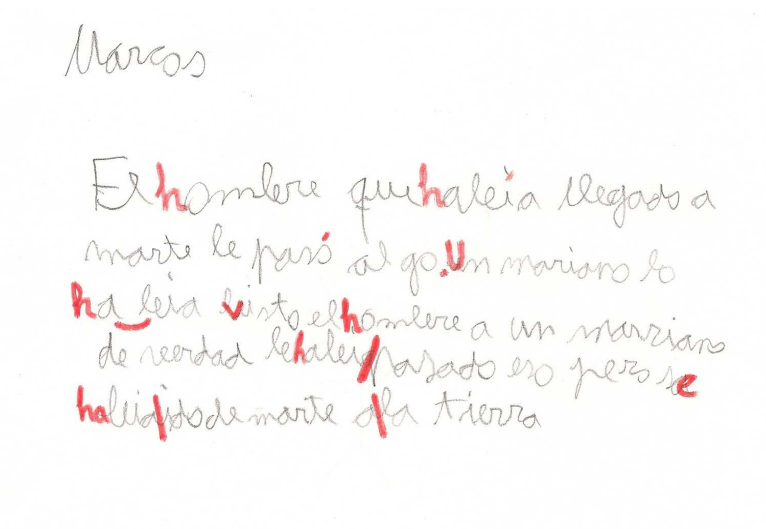 Marcos
El hombre que habia llegado a
marte le pasó algo. Un mariano lo
ha bia visto el hombre a un marriano
de verdad le habia pasado eso pero se
habia ido de marte a la tierra